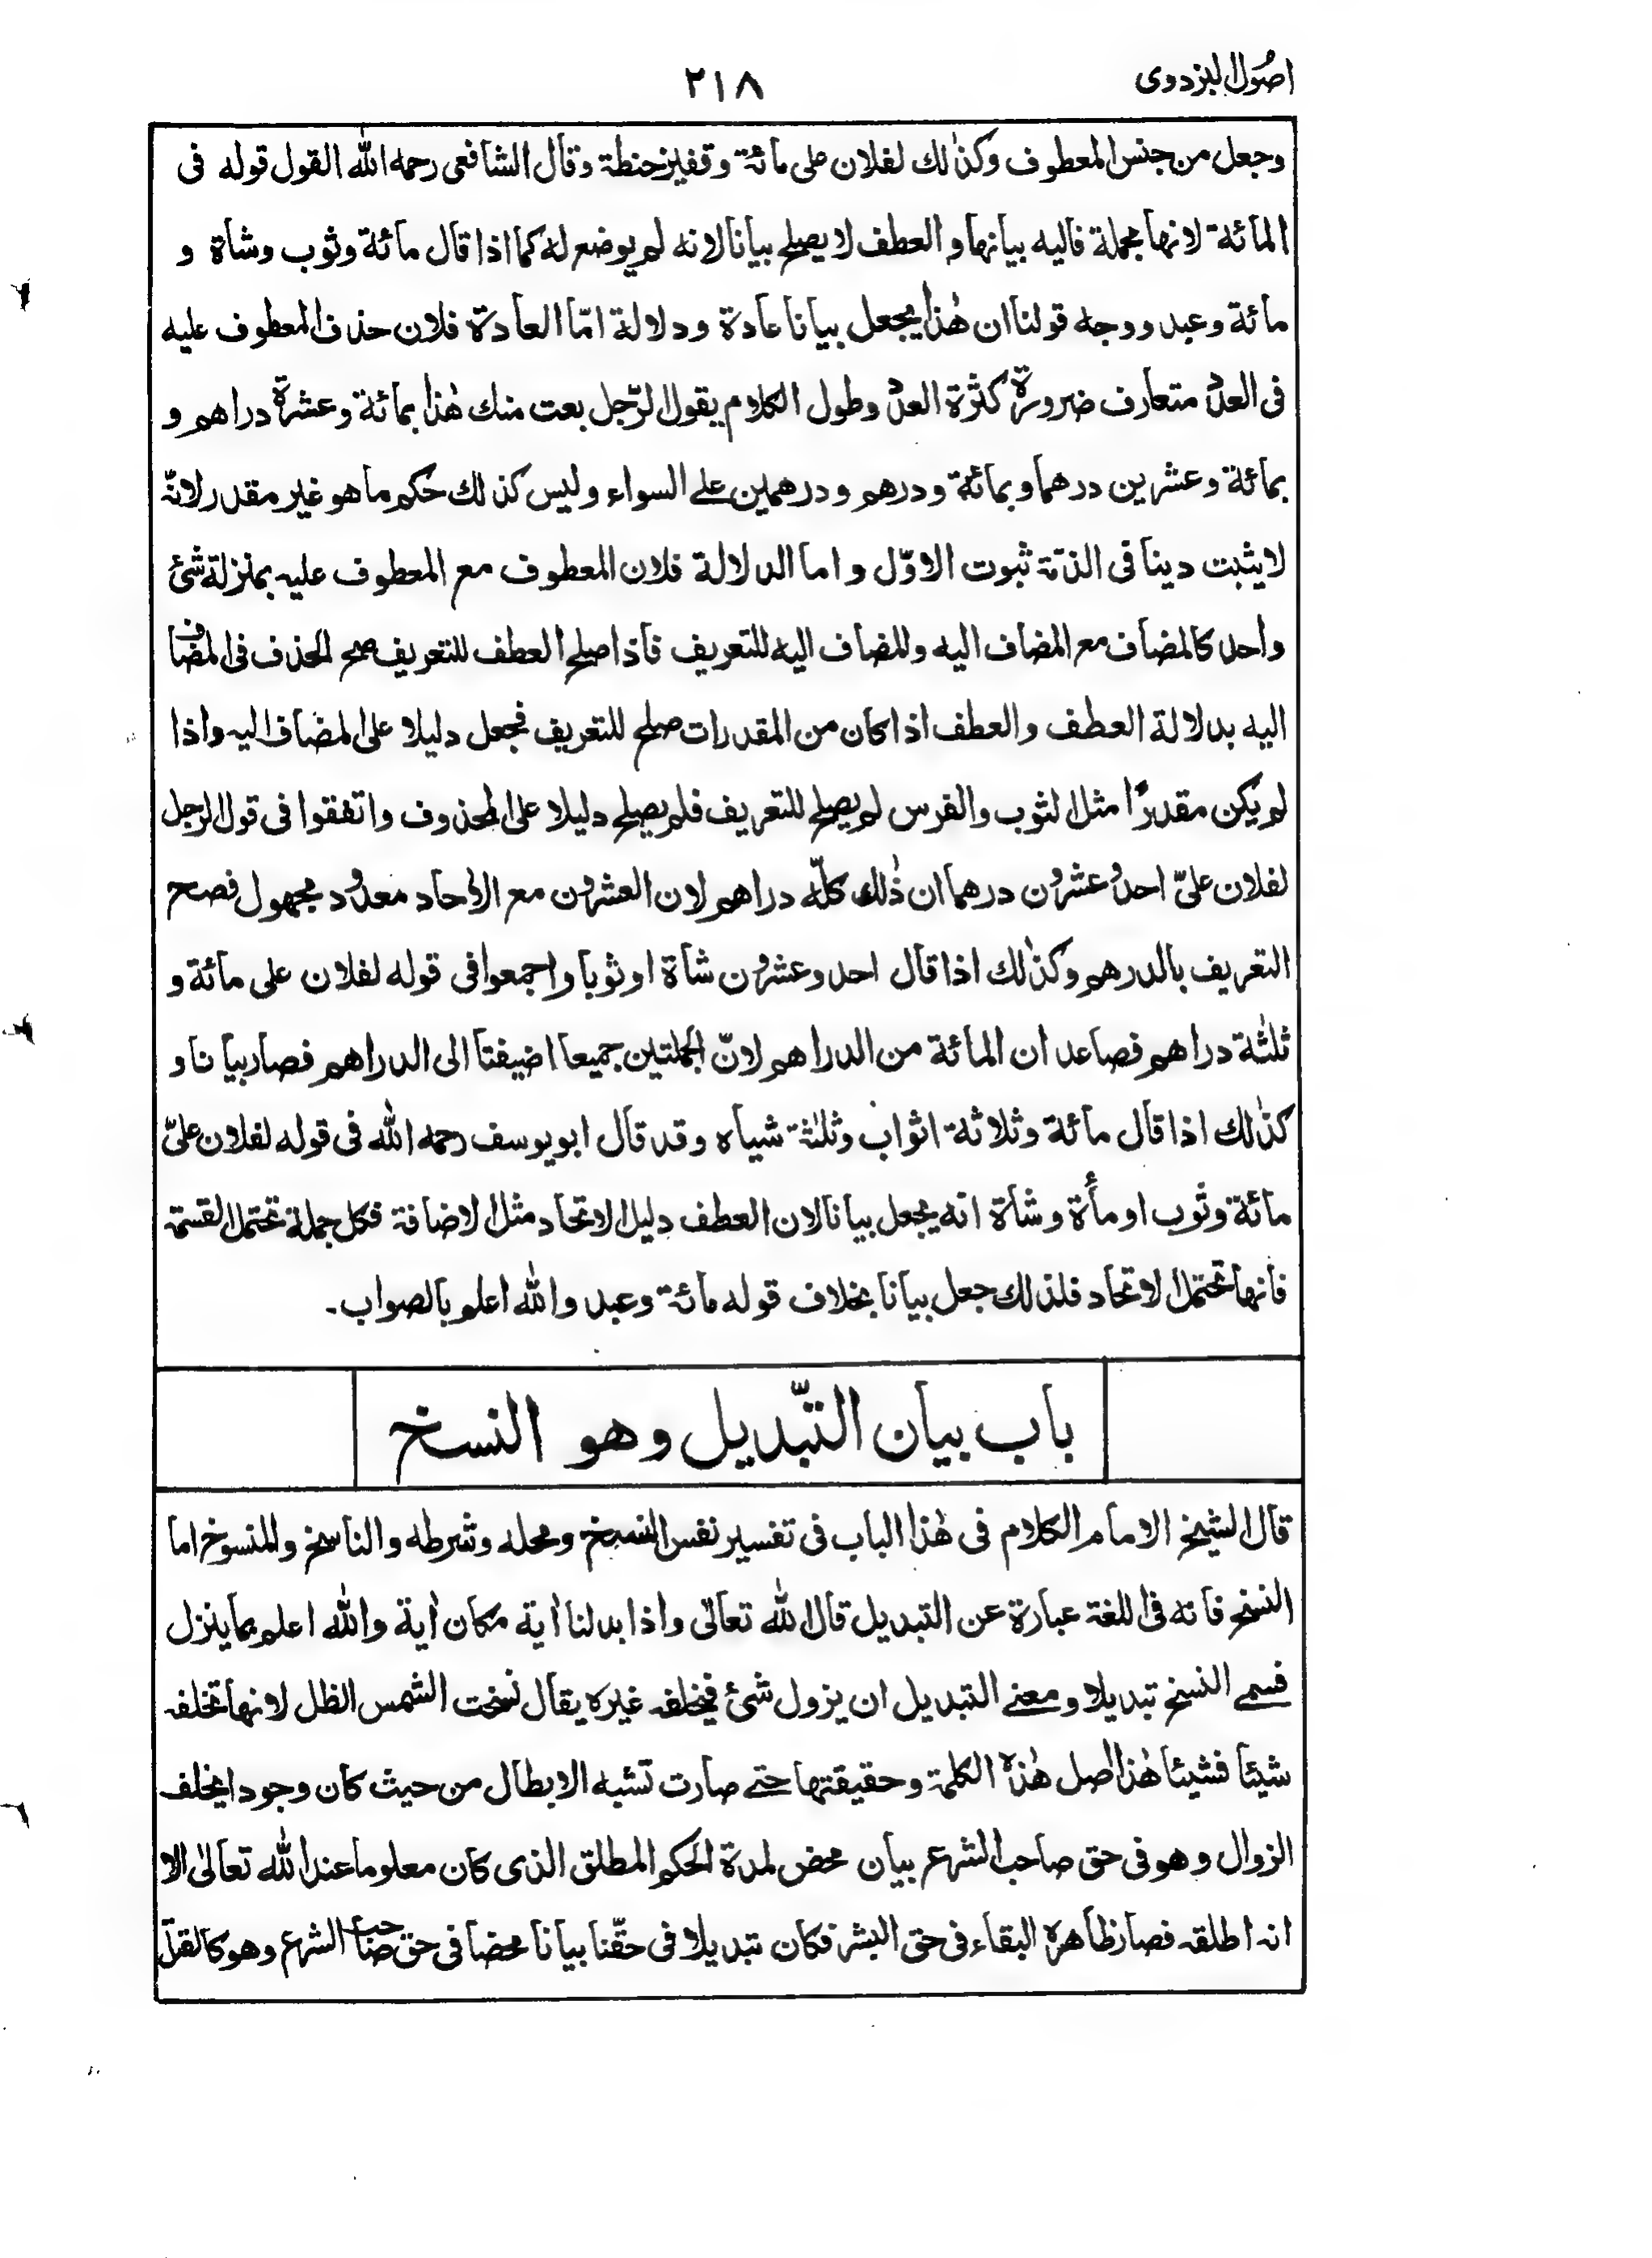 اصُول البزدوی
٢١٨
وجعل من جنس المعطوف وكذٰلك لفلان على مائة وقفيز حنطة وقال الشافعى رحمه الله القول قوله فى
المائة لانها مجملة فاليه بيانها والعطف لا يصلح بيانا لانه لم يوضع له كما اذا قال مائة وثوب وشاة و
مائة وعبد ووجه قولنا ان هٰذا يجعل بيانا عادة ودلالة امّا العادة فلان حذف المعطوف عليه
فى العدد متعارف ضرورة كثرة العدد وطول الكلام يقول الرّجل بعت منك هٰذا بمائة وعشرة دراهم و
بمائة وعشرين درهما وبمائة ودرهم ودرهمين علے السواء وليس كذلك حكم ما هو غير مقدر لانّه
لا يثبت دينا فى الذمّة ثبوت الاوّل واما الدلالة فلان المعطوف مع المعطوف عليه بمنزلة شئ
واحد كالمضاف مع المضاف اليه والمضاف اليه للتعريف فاذا صلح العطف للتعريف صح الحذف فى المضاف
اليه بدلالة العطف والعطف اذا كان من المقدرات صلح للتعريف فجعل دليلا على المضاف اليه واذا
لم يكن مقدرًا مثل الثوب والفرس لم يصلح للتعريف فلم يصلح دليلا على المحذوف واتفقوا فى قول الرجل
لفلان علىّ احد وعشرون درهما ان ذٰلك كلّه دراهم لان العشرون مع الاٰحاد معدود مجهول فصح
التعريف بالدرهم وكذٰلك اذا قال احد وعشرون شاة او ثوبا واجمعوا فى قوله لفلان على مائة و
ثلٰثة دراهم فصاعدا ان المائة من الدراهم لانّ الجملتين جميعا اضيفتا الى الدراهم فصار بيانا و
كذٰلك اذا قال مائة وثلاثة اثواب وثلٰثة شياه وقد قال ابو يوسف رحمه الله فى قوله لفلان علىّ
مائة وثوب او مأة وشاة انه يجعل بيانا لان العطف دليل الاتحاد مثل الاضافة فكل جملة تحتمل القسمة
فانها تحتمل الاتحاد فلذلك جعل بيانا بخلاف قوله مائة وعبد والله اعلم بالصواب۔
باب بيان التّبديل وهو النسخ
قال الشيخ الامام الكلام فى هٰذا الباب فى تفسير نفس النسخ ومحله وشرطه والناسخ والمنسوخ اما
النسخ فانه فى اللغة عبارة عن التبديل قال الله تعالىٰ واذا بدلنا اٰية مكان اٰية والله اعلم بما ينزل
فسمے النسخ تبديلا ومعنے التبديل ان يزول شئ فيخلفه غيره يقال نسخت الشمس الظل لانها تخلفه
شيئا فشيئا هٰذا اصل هٰذه الكلمة وحقيقتها حتے صارت تشبه الابطال من حيث كان وجودا يخلف
الزوال وهو فى حق صاحب الشرع بيان محض لمدة الحكم المطلق الذى كان معلوما عند الله تعالىٰ الا
انه اطلقه فصار ظاهره البقاء فى حق البشر فكان تبديلا فى حقّنا بيانا محضا فى حق صاحب الشرع وهو كالقتل